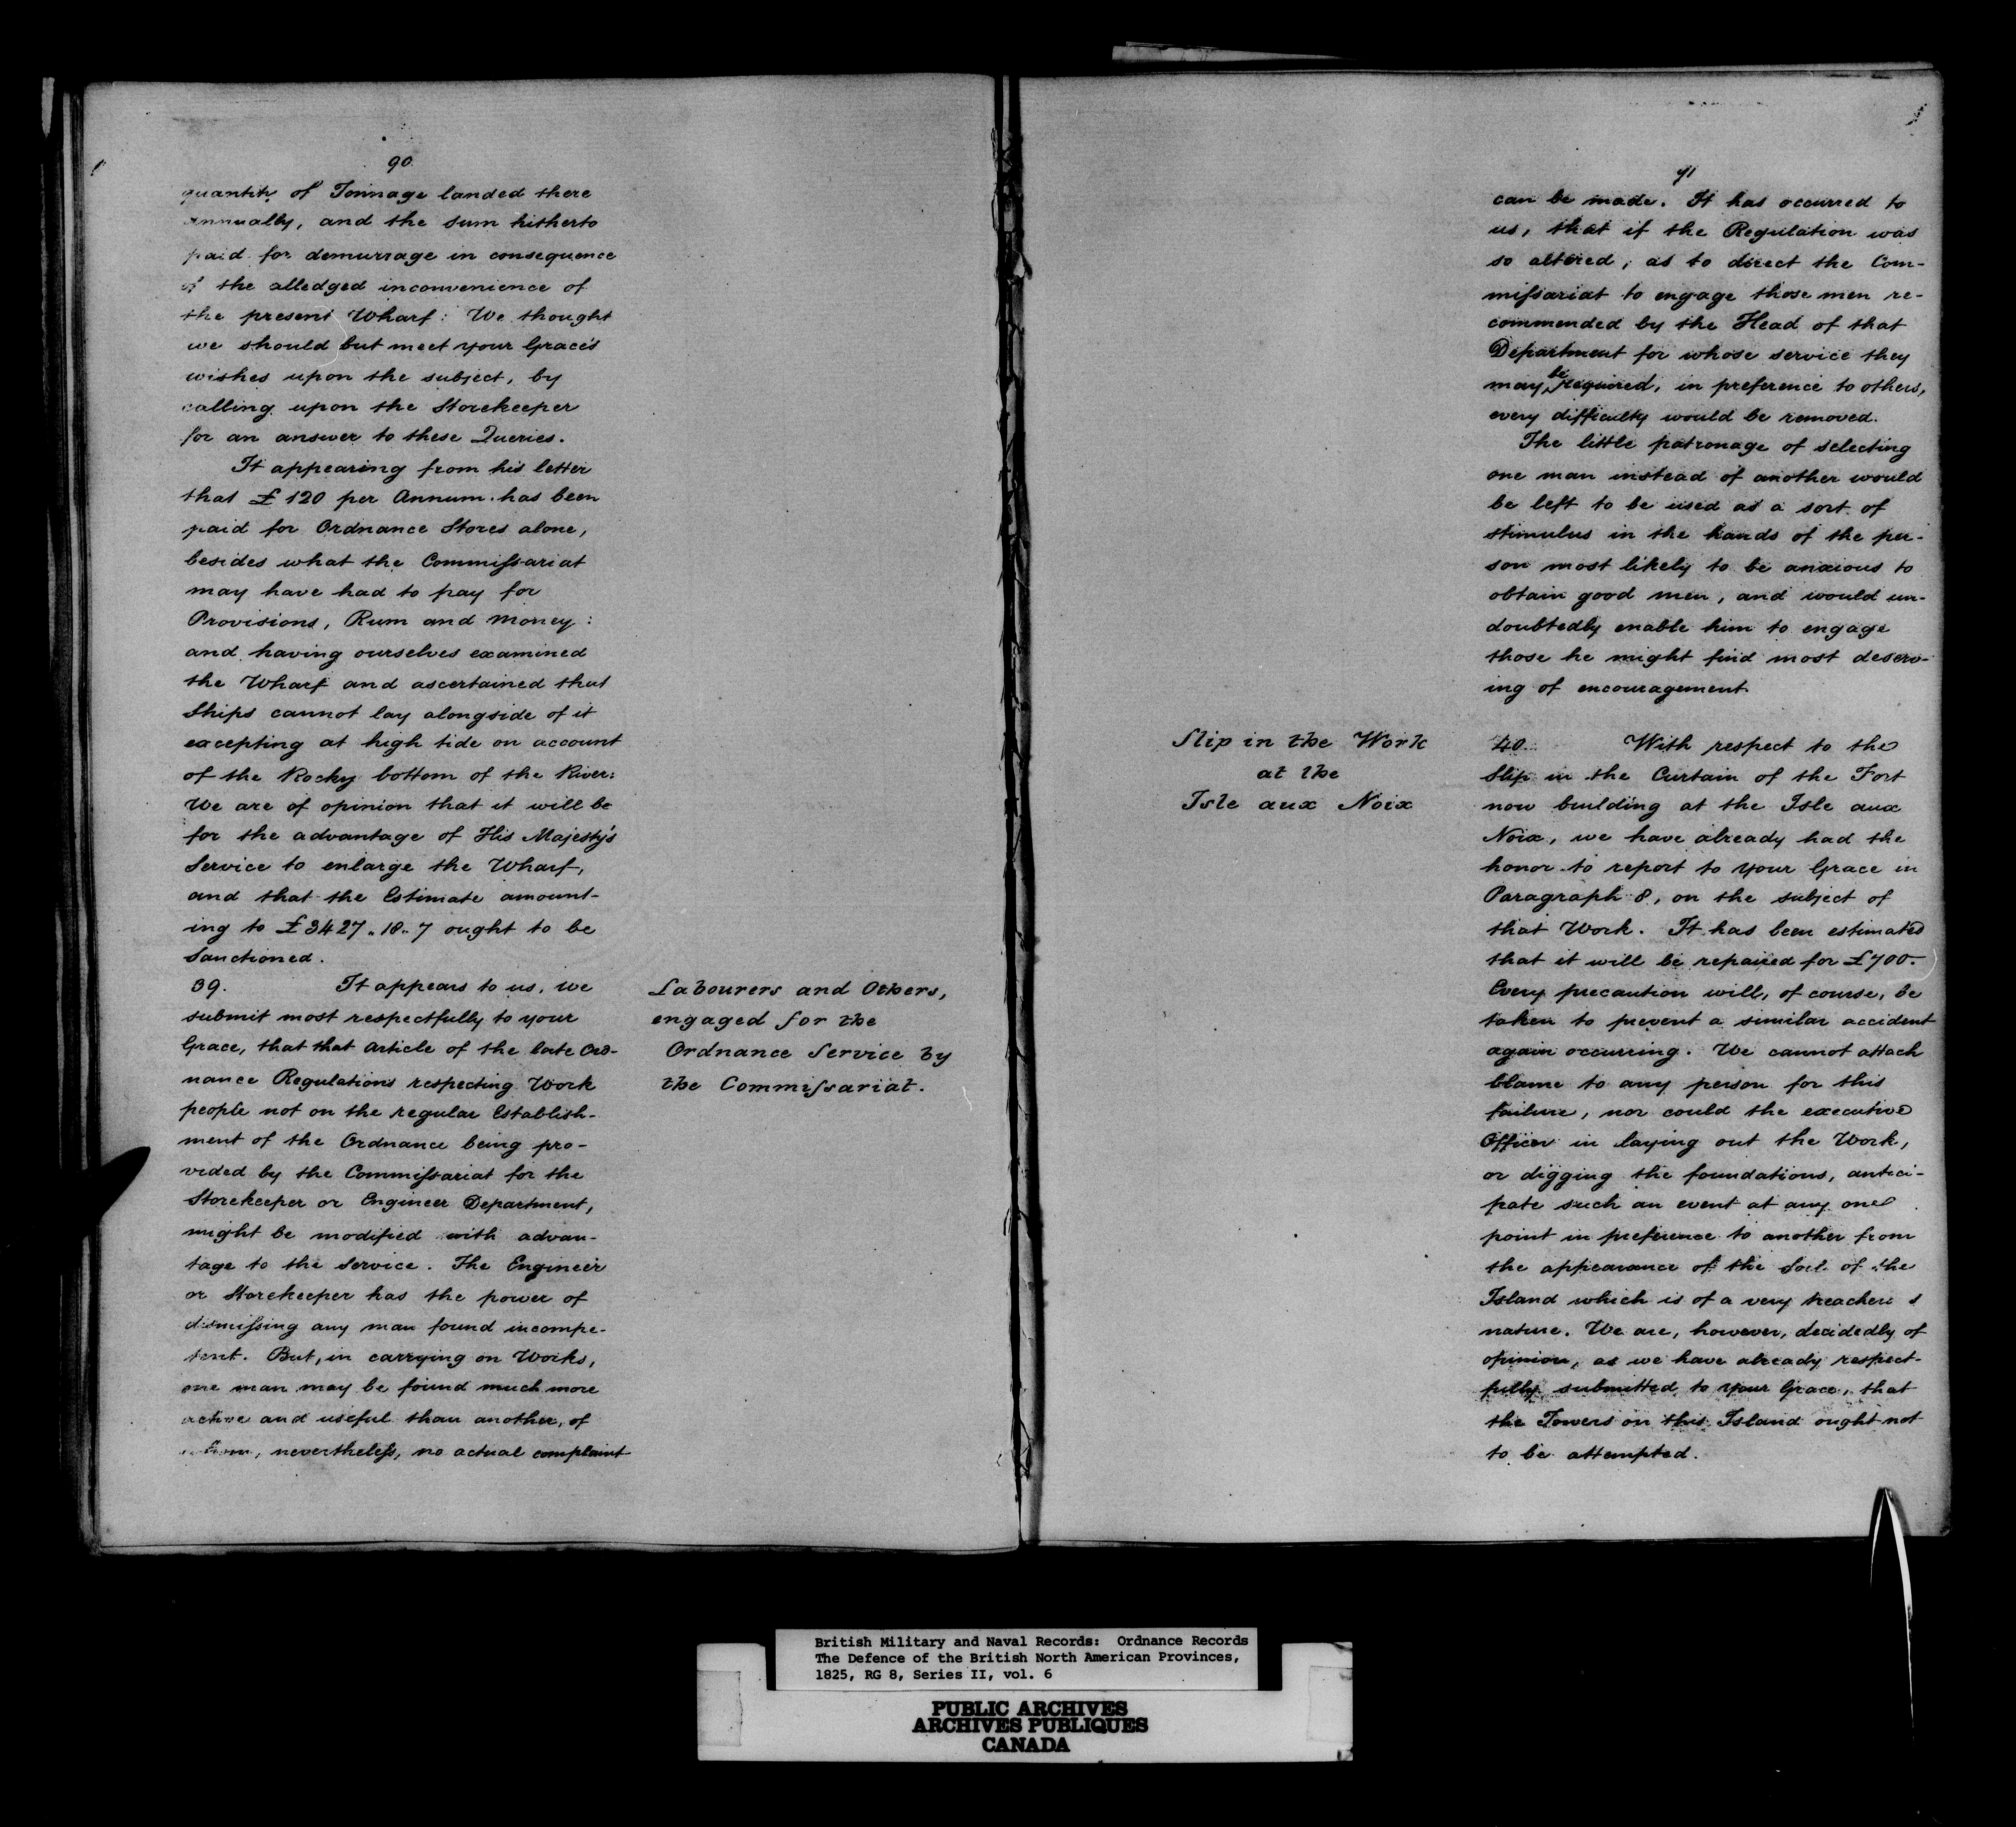 90
quantity of Tonnage landed there
annually, and the sum hitherto
paid for demurrage in consequence
of the alledged inconvenience of
the present Wharf: We thought
we should but meet your Grace's
wishes upon the subject, by
calling upon the Storekeeper
for an answer to these Queries.
It appearing from his letter
that £120 per Annum has been
paid for Ordnance Stores alone,
besides what the Commissariat
may have had to pay for
Provisions, Rum and Money:
and having ourselves examined
the Wharf and ascertained that
Ships cannot lay alongside of it
excepting at high tide on account
of the Rocky bottom of the River:
We are of opinion that it will be
for the advantage of His Majesty's
Service to enlarge the Wharf,
and that the Estimate amount-
ing to £3427.. 18.. 7 ought to be
Sanctioned.
39. It appears to us, we
submit most respectfully to your
Grace, that that Article of the late Ord-
nance Regulations respecting Work
people not on the regular Establish-
ment of the Ordnance being pro-
vided by the Commissariat for the
Storekeeper or Engineer Department,
might be modified with advan-
tage to the Service. The Engineer
or Storekeeper has the power of
dismissing any man found incompe-
tent. But, in carrying on Works,
one man may be found much more
active and useful than another, of
whom, nevertheless, no actual complaint
Labourers and Others,
engaged for the
Ordnance Service by
the Commissariat.
91
can be made. It has occurred to
us, that if the Regulation was
so altered, as to direct the Com-
missariat to engage those men re-
commended by the Head of that
Department for whose service they
may be required, in preference to others,
every difficulty would be removed.
The little patronage of selecting
one man instead of another would
be left to be used as a sort of
stimulus in the hands of the per-
son most likely to be anxious to
obtain good men, and would un-
doubtedly enable him to engage
those he might find most deserv-
ing of encouragement.
Slip in the Work
at the
Isle aux Noix
40. With respect to the
Slip in the Curtain of the Fort
now building at the Isle aux
Noix, we have already had the
honor to report to your Grace in
Paragraph 8, on the subject of
that Work. It has been estimated
that it will be repaired for £700.
Every precaution will, of course, be
taken to prevent a similar accident
again occurring. We cannot attach
blame to any person for this
failure, nor could the executive
Officer in laying out the Work,
or digging the foundations, antici-
pate such an event at any one
point in preference to another from
the appearance of the Soil of the
Island which is of a very treacherous
nature. We are, however, decidedly of
opinion, as we have already respect-
fully submitted to your Grace, that
the Towers on this Island ought not
to be attempted.
British Military and Naval Records: Ordnance Records
The Defence of the British North American Provinces,
1825, RG 8, Series II, vol. 6
PUBLIC ARCHIVES
ARCHIVES PUBLIQUES
CANADA